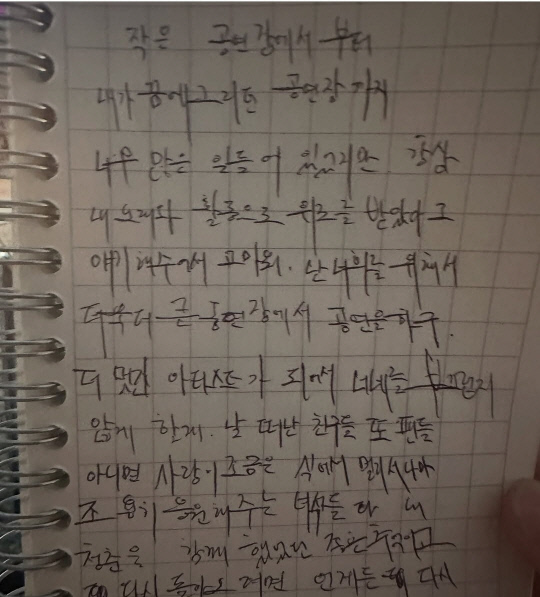 작은 공연장에서 부터
내가 꿈에 그리던 공연장 까지
너무 많은 일들이 있었지만 항상
내 노래와 활동으로 위로를 받았다고
얘기해주어서 고마워. 난 너희를 위해서
더욱더 큰 공연장에서 공연을 하구.
더 멋진 아티스트가 되어서 너네를 부끄럽지
않게 할게. 날 떠난 친구들 또 팬들
아니면 사랑이 조금은 식어서 멀리서나마
조용히 응원해주는 녀석들 다 내
청춘을 함께 했었던 좋은 추억이고
다시 돌아오려면 언제든 다시